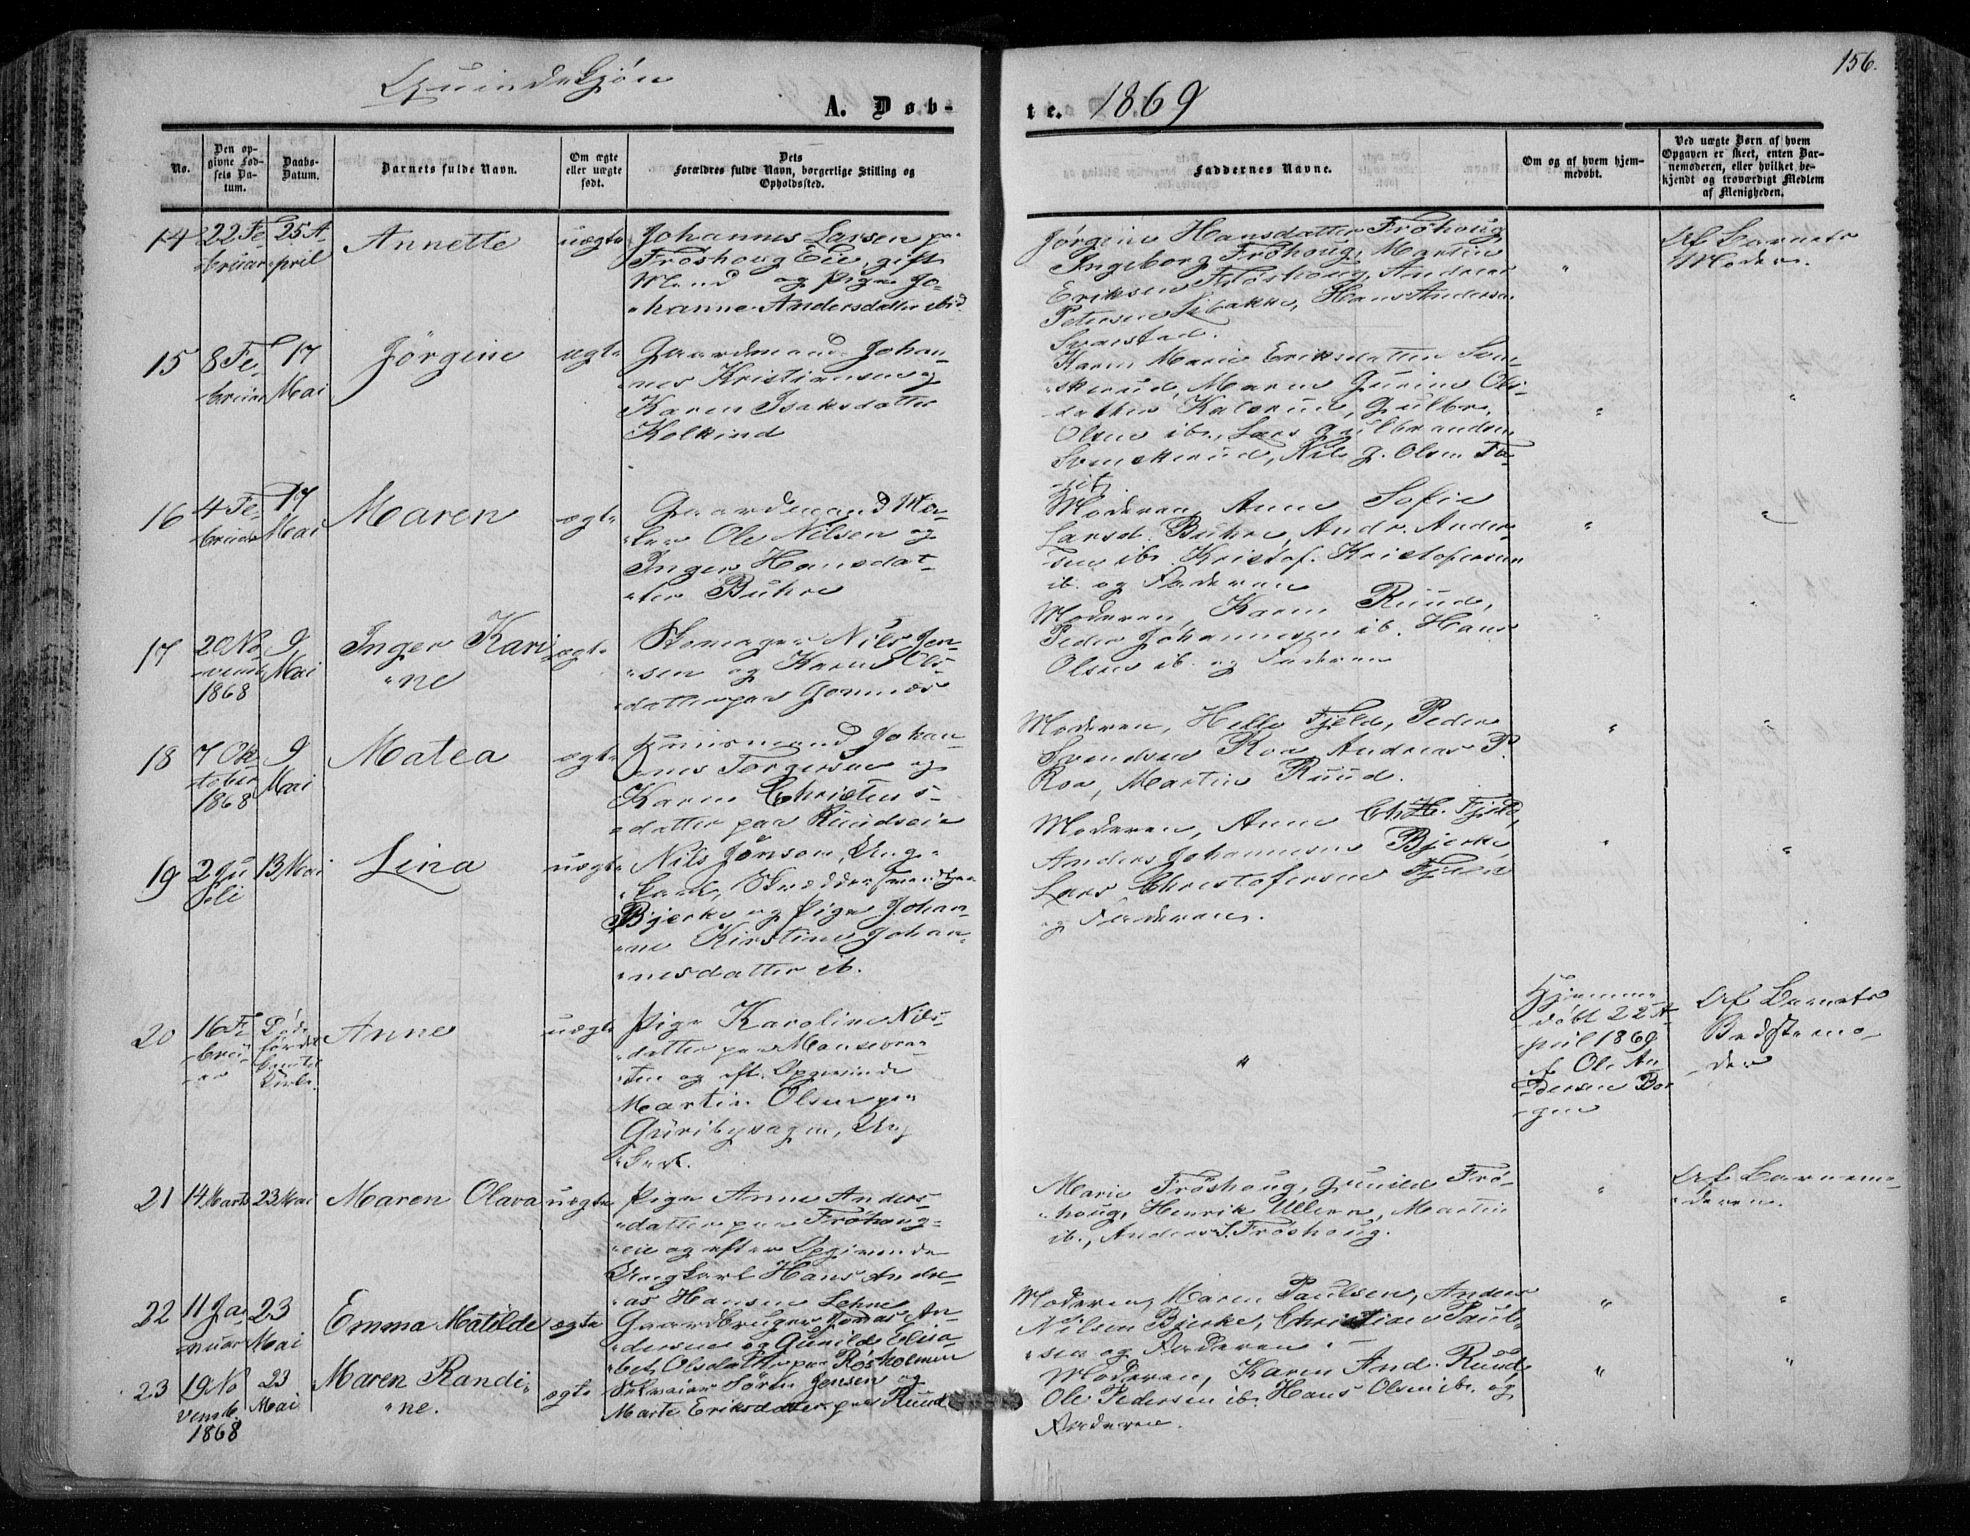 Quindekjøn
A. Døb-
te. 1869
156.
No.
Den opgivne Fødsels Datum.
Daabs-Datum.
Barnets fulde Navn.
Om ægte eller uægte født.
Dets Forældres fulde Navn, borgerlige Stilling og Opholdssted.
Faddernes Navne.
Om og af hvem hjemmedøbt.
Ved uægte Børn af hvem Opgaven er skeet, enten Barnemoderen, eller hvilket bekjendt og troværdigt Medlem af Menigheden.
14
22 Fe-
bruar
25 A-
pril
Annette
uægte
Johannes Larsen paa
Frøshoug Eie, gift
Mand og Pige Jo-
hanne Andersdatter ibid.
Jørgine Hansdatter Frøhoug,
Ingeborg Frøhoug, Martin
Eriksen Frøshoug, Andreas
Petersen Libakke, Hans Andersen
Svarstad.
Af Barnets
Moder.
15
8 Fe-
bruar
17
Mai
Jørgine
ægte
Gaardmand Johan-
nes Kristiansen og
Karen Isaksdatter
Kolkind
Karen Marie Eriksdatter Sven-
skerud, Maren Gurine Ols-
datter Kalsrud, Gulbr.
Olsen ib., Lars Gulbrandsen
Svenskerud, Nils G. Olsen
16
4 Fe-
bruar
17
Mai
Maren
ægte
Gaardmand Ma-
ler Ole Nilsen og
Inger Hansdat-
ter Buhre
Moderen, Anne Sofie
Larsd. Buhre, Andr. Ander-
sen ib. Kristof. Kristofersen
ib. og Faderen
17
20 No-
vemb.
1868
9
Mai
Inger Kari-
ne
ægte
Skomager Nils Jen-
sen og Karen Ols-
datter paa Gomnæs
Moderen, Karen Ruud,
Peder Johannesen ib. Hans
Olsen ib. og Faderen
18
7 Ok-
tober
1868
9
Mai
Matea
ægte
Huusmand Johan-
nes Torgersen og
Karen Christens-
datter paa Ruudseie
Moderen, Helle Fjeld, Peder
Svendsen Roa, Andreas P.
Roa, Martin Ruud.
19
2 Ju-
li
13 Mai
Lina
uægte
Nils Jonsen, Ung-
karl, Skrædder
Bjerke og Pige Johan-
ne Kirstine Johan-
nesdatter ib.
Moderen, Anne Chr. Fjeld,
Anders Johannesen Bjerke,
Lars Christofersen Fjeld
og Faderen.
20
16 Fe-
bruar
Anne
uægte
Pige Karoline Nils-
datter paa
og eft. Opgivende
Martin Olsen paa
Guribysagen, Ung-
karl.
Hjemme-
døbt 22 A-
pril 1869
af Ole An-
dersen Bo-
gen
Af Barnets
Bedstemo-
der
21
14 Marts
23 Mai
Maren Olava
uægte
Pige Anne Anders-
datter paa Frøhoug-
eie og efter Opgivende
Ungkarl Hans Andre-
as Hansen Lehne
Marie Frøshoug, Gunild Frø-
houg, Henrik Ullern, Martin
ib., Anders S. Frøshoug.
Af Barnemo-
deren.
22
11 Ja-
nuar
23
Mai
Emma Matilde
ægte
Gaardbruger Jonas An-
dersen og Gunild Elisa-
bet Olsdatter paa Røsholmen
Moderen, Maren Paulsen, Anders
Nilsen Bjerke, Christian Paul-
sen og Faderen.
23
19 No-
vemb.
1868
23
Mai
Maren Randi-
ne.
ægte
Selveier Søren Jensen og
Marte Eriksdatter paa Ruud
Moderen, Karen And. Ruud,
Ole Pedersen ib. Hans Olsen ib. og
Faderen.